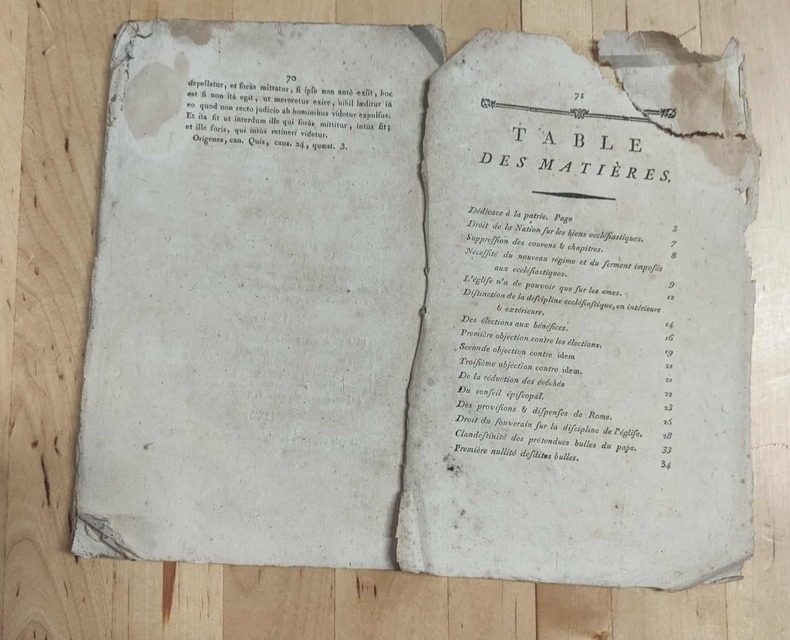 70
depellatur, et foràs mittatur, ſi ipſe non antè exiit, hoc
est ſi non ità egit, ut mereretur exire, nihil læditur in
eo quod non recto judicio ab hominibus videtur expulſus.
Et ita fit ut interdum ille qui foràs mittitur, intùs ſit;
et ille foris, qui intùs retineri videtur.
Origenes, can. Quis, caus. 24, quæst. 3.
71
TABLE
DES MATIÈRES.
Dédicace à la patrie. Page 3
Droit de la Nation ſur les biens eccléſiastiques. 7
Suppreſſion des couvens & chapitres. 8
Néceſſité du nouveau régime et du ſerment impoſés
aux eccléſiastiques. 9
L'égliſe n'a de pouvoir que ſur les ames. 12
Diſtinction de la diſcipline eccléſiaſtique, en intérieure
& extérieure. 14
Des élections aux bénéfices. 16
Première objection contre les élections. 19
Seconde objection contre idem 21
Troiſième objection contre idem. 21
De la réduction des évêchés 22
Du conſeil épiſcopal. 23
Des proviſions & diſpenſes de Rome. 25
Droit du ſouverain ſur la diſcipline de l'égliſe. 28
Clandéſtinité des prétendues bulles du pape. 33
Première nullité deſdites bulles. 34